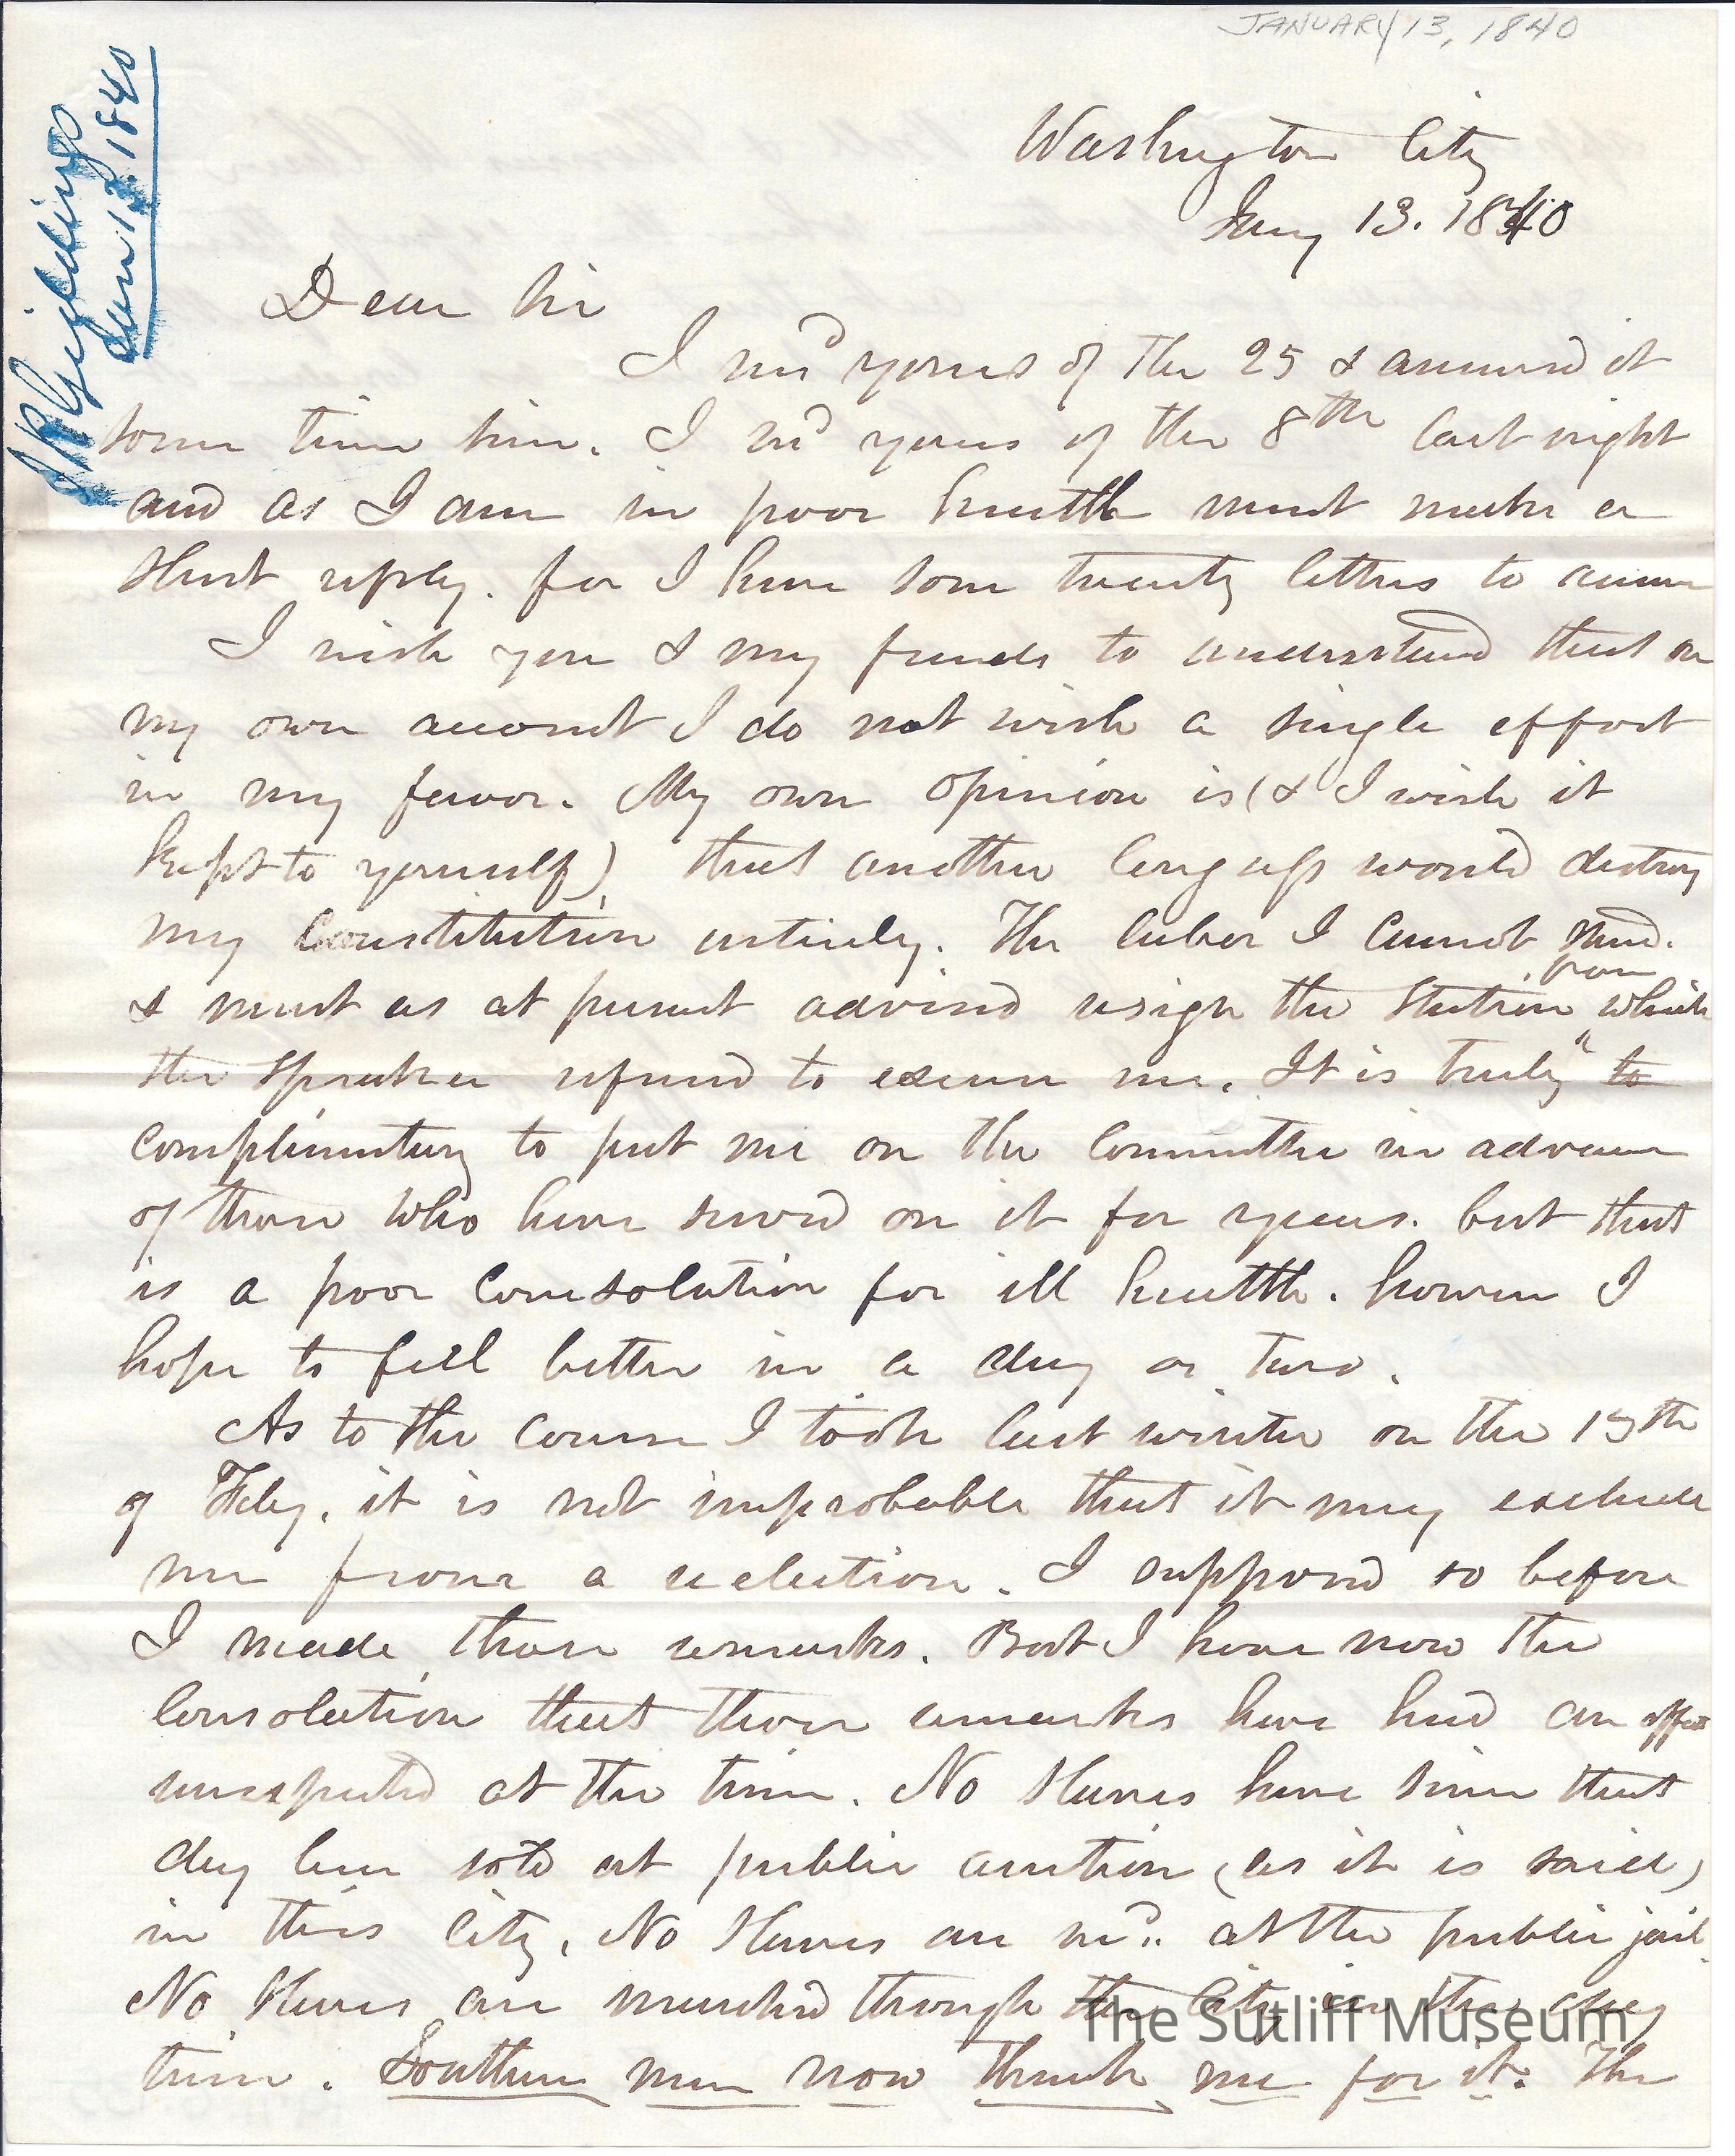 JANUARY 13, 1840
J R Giddings
Jan 13. 1840
Washington City
Jany 13. 1840
Dear Sir
I recd yours of the 25 & answerd it
some time since. I recd yours of the 8th last night
and as I am in poor health must make a
short reply. for I have some twenty letters to answer
I wish you & my friends to understand that on
my own account I do not wish a single effort
in my favor. My own opinion is (& I wish it
kept to yourself) that another long sess would destroy
my Constitution entirely. The labor I cannot
& must as at present advised resign the Station from which
the Speaker refused to excuse me. It is truly to
complimentary to put me on the Committee in advance
of those who have served on it for years. but that
is a poor consolation for ill health. however I
hope to feel better in a day or two.
As to the course I took last winter on the 13th
of Feby. it is not improbable that it may exclude
me from a reelection. I supposed so before
I made those remarks. But I have now the
Consolation that those remarks have had an effect
unexpected at the time. No Slaves have since that
day been sold at public auction (as it is said)
in this City. No Slaves are recd. at the public jail.
No Slaves are marched through the City in the day
time. Southern men now thank me for it. The
The Sutliff Museum